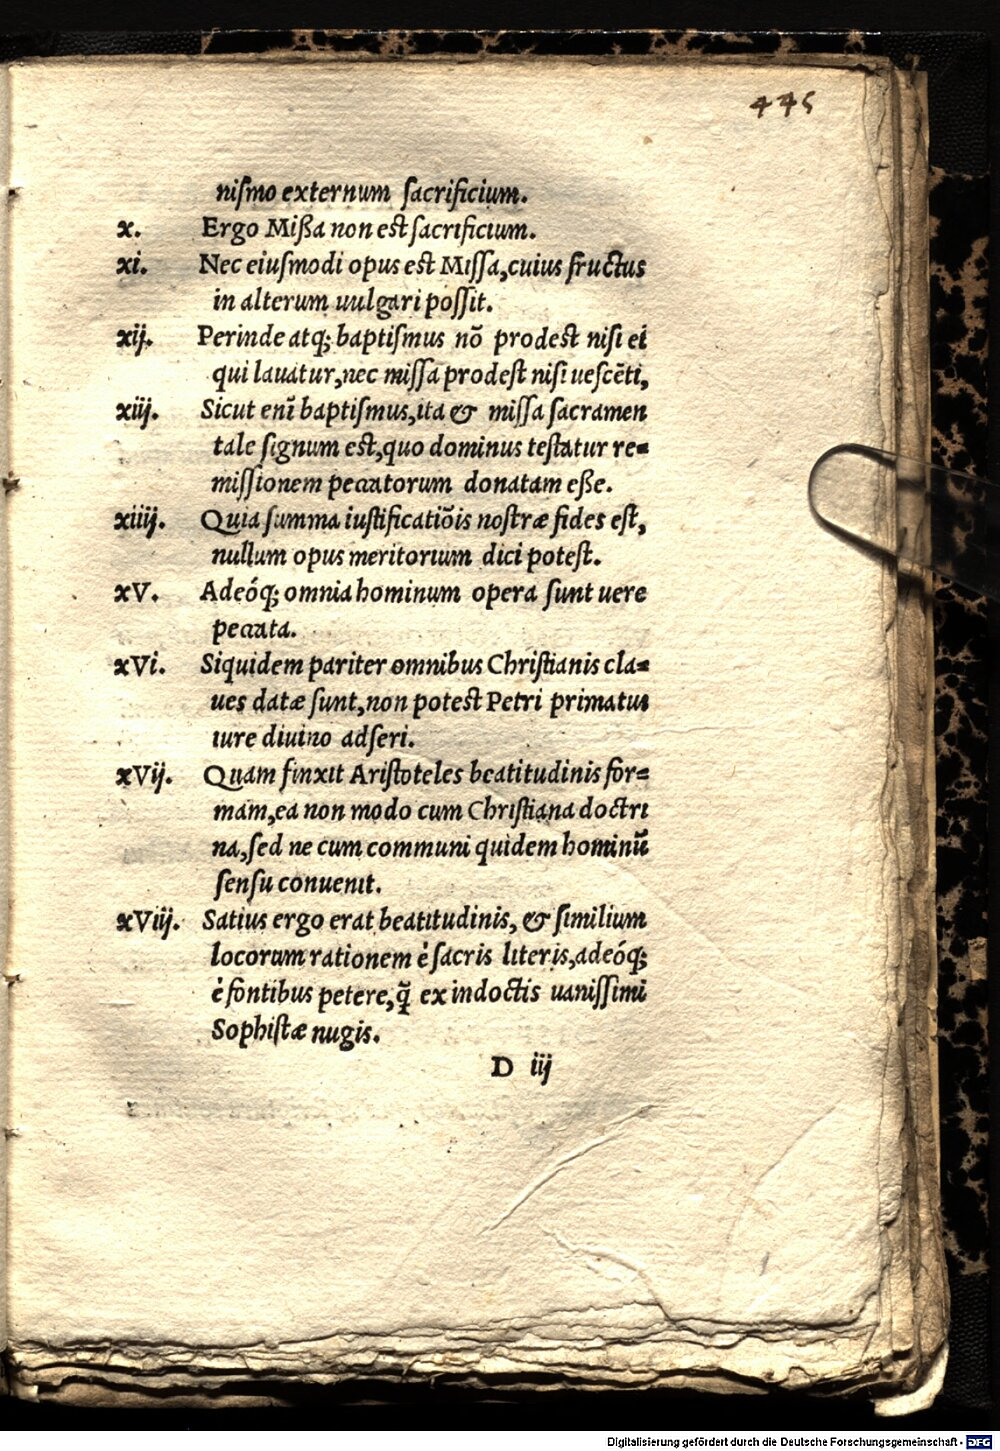 445
niſmo externum ſacrificium.
x. Ergo Mißa non est ſacrificium.
xi. Nec eiuſmodi opus est Miſſa,cuius fructus
in alterum uulgari poſſit.
xij. Perinde atq; baptiſmus nõ prodest niſi ei
qui lauatur,nec miſſa prodeſt niſi ueſcẽti,
xiij. Sicut enĩ baptiſmus,ita & miſſa ſacramen
tale ſignum est,quo dominus teſtatur re=
miſſionem peccatorum donatam eße.
xiiij. Quia ſumma iuſtificatiõis noſtræ fides eſt,
nullum opus meritorium dici poteſt.
xV. Adeóq; omnia hominum opera ſunt uere
peccata.
xVi. Siquidem pariter omnibus Chriſtianis cla=
ues datæ ſunt,non potest Petri primatus
iure diuino adſeri.
xVij. Quam finxit Ariſtoteles beatitudinis for=
mam,ea non modo cum Chriſtiana doctri
na,ſed ne cum communi quidem hominũ
ſenſu conuenit.
xViij. Satius ergo erat beatitudinis, & ſimilium
locorum rationem è ſacris literis,adeóq;
è fontibus petere,q̃ ex indoctis uaniſſimi
Sophiſtæ nugis.
D iij
Digitalisierung gefördert durch die Deutsche Forschungsgemeinschaft - DFG